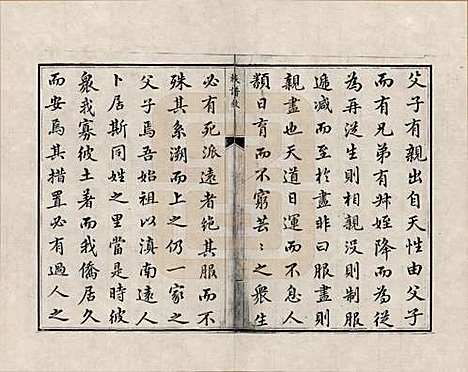 父子有親出自天性由父子
而有兄弟有叔姪降而為從
為再從生則相親沒則制服
遞減而至於盡非曰服盡則
親盡也天道日運而不息人
類日育而不窮芸〻之眾生
族譜叙
必有死派遠者絕其服而不
殊其系溯而上之仍一家之
父子焉吾始祖以滇南遠人
卜居斯同姓之里當是時彼
眾我寡彼土著而我僑居久
而安焉其措置必有過人之